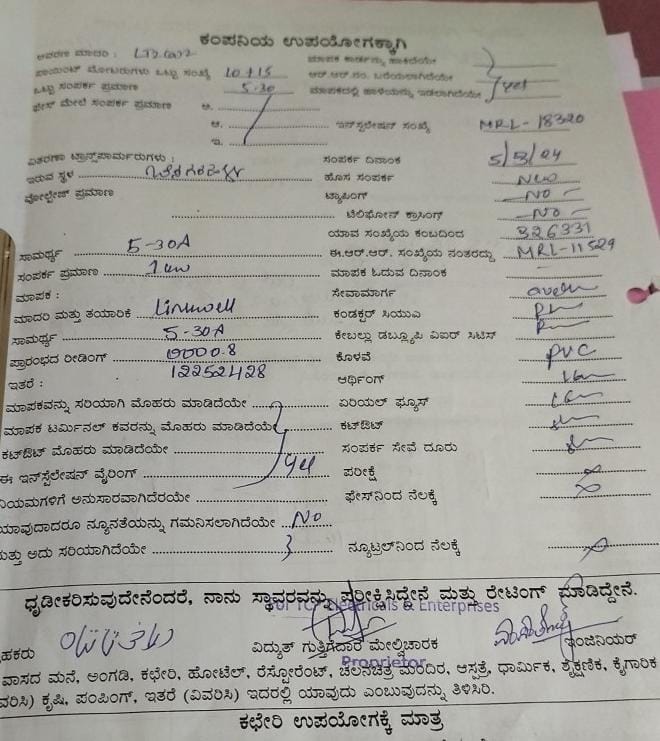 ಕಂಪನಿಯ ಉಪಯೋಗಕ್ಕಾಗಿ
ಆವರಣ ಮಾದರಿ : ಮಾಪಕ ಕಾರ್ಡನ್ನು ಹಾಕಿದೆಯೇ
ಪಾಯಿಂಟ್ ಮೋಟರುಗಳು ಒಟ್ಟು ಸಂಖ್ಯೆ 10+15 ಆರ್.ಆರ್.ನಂ. ಬರೆಯಲಾಗಿದೆಯೇ
ಒಟ್ಟು ಸಂಪರ್ಕ ಪ್ರಮಾಣ 5-30 ಮಾಪಕದಲ್ಲಿ ಹಾಳೆಯನ್ನು ಇಡಲಾಗಿದೆಯೇ yes
ಫೇಸ್ ಮೇಲೆ ಸಂಪರ್ಕ ಪ್ರಮಾಣ ಅ.
ಆ. ಇನ್‌ಸ್ಟಲೇಷನ್ ಸಂಖ್ಯೆ MRL-18320
ಇ.
ವಿತರಣಾ ಟ್ರಾನ್ಸ್‌ಫಾರ್ಮರುಗಳು : ಸಂಪರ್ಕ ದಿನಾಂಕ 5/3/24
ಇರುವ ಸ್ಥಳ ಹೊಸ ಸಂಪರ್ಕ New
ವೋಲ್ಟೇಜ್ ಪ್ರಮಾಣ ಟ್ಯಾಪಿಂಗ್ NO
ಟೆಲಿಫೋನ್ ಕ್ರಾಸಿಂಗ್ NO
ಯಾವ ಸಂಖ್ಯೆಯ ಕಂಬದಿಂದ 326331
ಸಾಮರ್ಥ್ಯ 5-30A ಈ.ಆರ್.ಆರ್. ಸಂಖ್ಯೆಯ ನಂತರದ್ದು MRL-11529
ಸಂಪರ್ಕ ಪ್ರಮಾಣ 1 kw ಮಾಪಕ ಓದುವ ದಿನಾಂಕ
ಮಾಪಕ : ಸೇವಾಮಾರ್ಗ
ಮಾದರಿ ಮತ್ತು ತಯಾರಿಕೆ Linkwell ಕಂಡಕ್ಟರ್ ಸಿಯುಎ
ಸಾಮರ್ಥ್ಯ 5-30A ಕೇಬಲ್ಲು ಡಬ್ಲ್ಯೂಪಿ ವಿಐಆರ್ ಸಿಟಿಸ್
ಪ್ರಾರಂಭದ ರೀಡಿಂಗ್ 0000.8 ಕೊಳವೆ PVC
ಇತರೆ : 12252428 ಆರ್ಥಿಂಗ್
ಮಾಪಕವನ್ನು ಸರಿಯಾಗಿ ಮೊಹರು ಮಾಡಿದೆಯೇ ಏರಿಯಲ್ ಫ್ಯೂಸ್
ಮಾಪಕ ಟರ್ಮಿನಲ್ ಕವರನ್ನು ಮೊಹರು ಮಾಡಿದೆಯೇ ಕಟ್‌ಔಟ್
ಕಟ್‌ಔಟ್ ಮೊಹರು ಮಾಡಿದೆಯೇ ಸಂಪರ್ಕ ಸೇವೆ ದೂರು
ಈ ಇನ್‌ಸ್ಟಲೇಷನ್ ವೈರಿಂಗ್ yes ಪರೀಕ್ಷೆ
ನಿಯಮಗಳಿಗೆ ಅನುಸಾರವಾಗಿದೆರಯೇ ಫೇಸ್‌ನಿಂದ ನೆಲಕ್ಕೆ
ಯಾವುದಾದರೂ ನ್ಯೂನತೆಯನ್ನು ಗಮನಿಸಲಾಗಿದೆಯೇ NO
ಮತ್ತು ಅದು ಸರಿಯಾಗಿದೆಯೇ ನ್ಯೂಟ್ರಲ್‌ನಿಂದ ನೆಲಕ್ಕೆ
ಧೃಡೀಕರಿಸುವುದೇನೆಂದರೆ, ನಾನು ಸ್ಥಾವರವನ್ನು ಪರೀಕ್ಷಿಸಿದ್ದೇನೆ ಮತ್ತು ರೇಟಿಂಗ್ ಮಾಡಿದ್ದೇನೆ.
Electricals & Enterprises
ಹಕರು ವಿದ್ಯುತ್ ಗುತ್ತಿಗೆದಾರ ಮೇಲ್ವಿಚಾರಕ ಇಂಜಿನಿಯರ್
Proprietor
ವಾಸದ ಮನೆ, ಅಂಗಡಿ, ಕಛೇರಿ, ಹೋಟೆಲ್, ರೆಸ್ಟೋರೆಂಟ್, ಚಲನಚಿತ್ರ ಮಂದಿರ, ಆಸ್ಪತ್ರೆ, ಧಾರ್ಮಿಕ, ಶೈಕ್ಷಣಿಕ, ಕೈಗಾರಿಕ
ವರಿಸಿ) ಕೃಷಿ, ಪಂಪಿಂಗ್, ಇತರೆ (ವಿವರಿಸಿ) ಇದರಲ್ಲಿ ಯಾವುದು ಎಂಬುವುದನ್ನು ತಿಳಿಸಿರಿ.
ಕಛೇರಿ ಉಪಯೋಗಕ್ಕೆ ಮಾತ್ರ